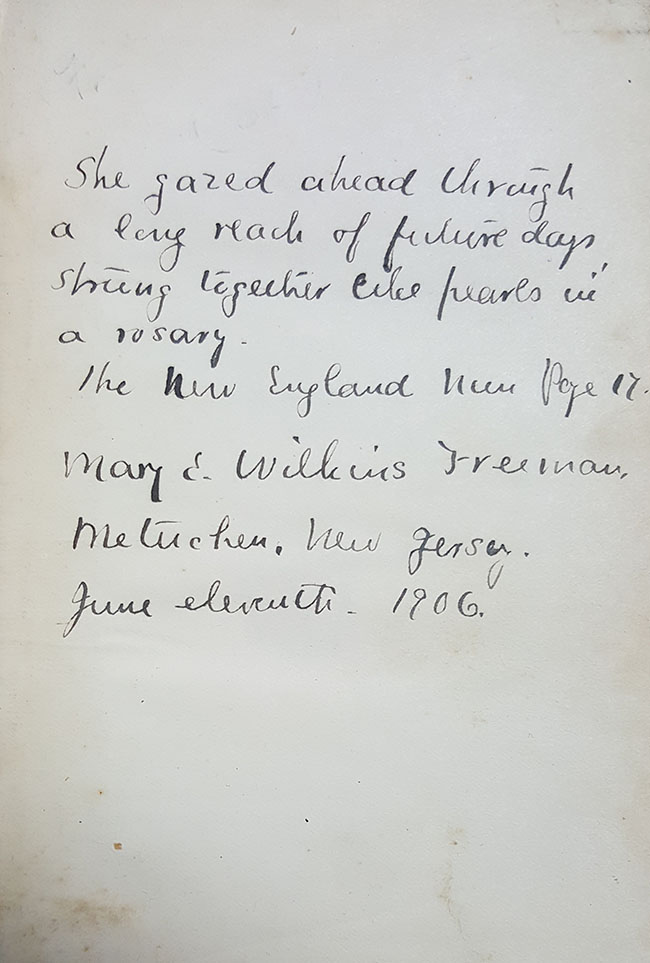 She gazed ahead through
a long reach of future days,
strung together like pearls in
a rosary.
The New England Nun Page 17.
Mary E. Wilkins Freeman.
Metuchen. New Jersey.
June eleventh. 1906.